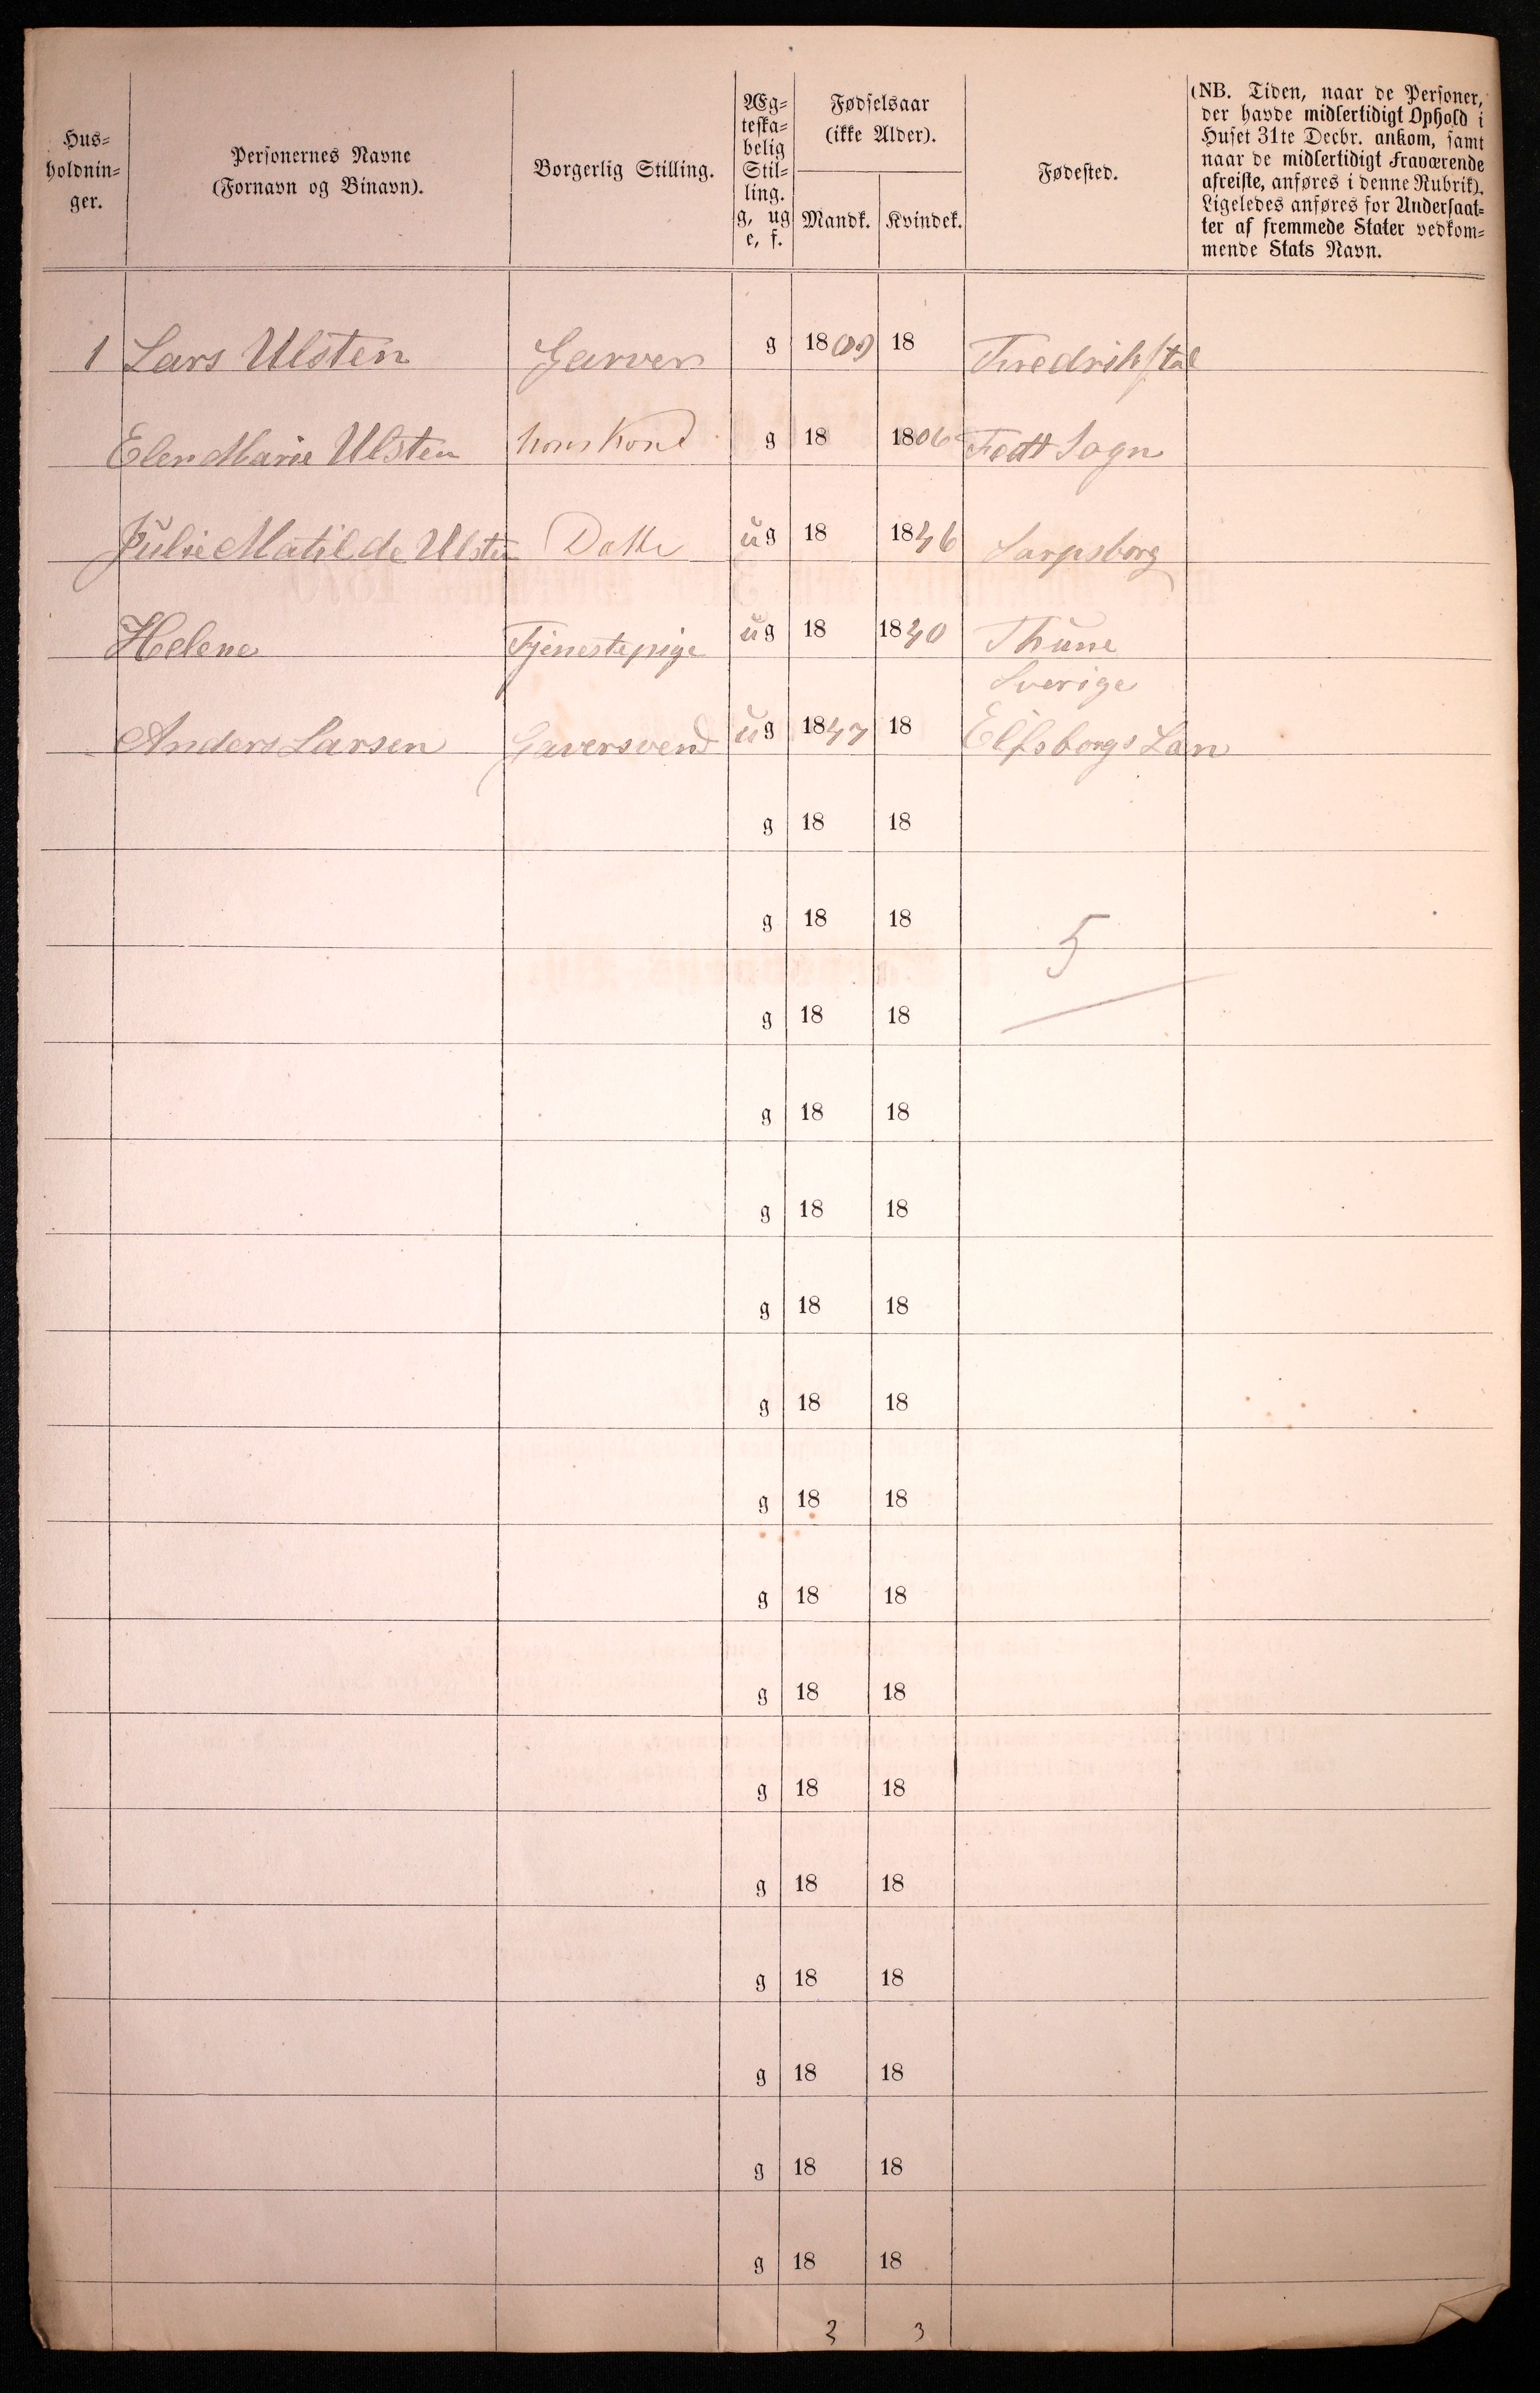 Hus=
holdnin=
ger.
Personernes Navne
(Fornavn og Binavn).
Borgerlig Stilling.
Æg=
teska=
belig
Stil=
ling.
g, ug
e, f.
Fødselsaar
(ikke Alder).
Mandk.
Kvindek.
Fødested.
(NB. Tiden, naar de Personer,
der havde midlertidigt Ophold i
Huset 31te Decbr. ankom, samt
naar de midlertidigt Fraværende
afreiste, anføres i denne Rubrik).
Ligeledes anføres for Undersaat=
ter af fremmede Stater vedkom=
mende Stats Navn.
1 Lars Ulsten Garver g 1809 18 Fredrikstal
Elen Marie Ulsten hans Kone g 18 1806 Sogn
Julie Matilde Ulsten Datte ug 18 1846 Sarpsborg
Helene Tjenestepige ug 18 1840 Thune
Sverige
Anders Larsen Gaversvend ug 1847 18 Elfsborgs Lan
g 18 18
g 18 18
5
g 18 18
g 18 18
g 18 18
g 18 18
g 18 18
g 18 18
g 18 18
g 18 18
g 18 18
g 18 18
g 18 18
g 18 18
g 18 18
g 18 18
2 3